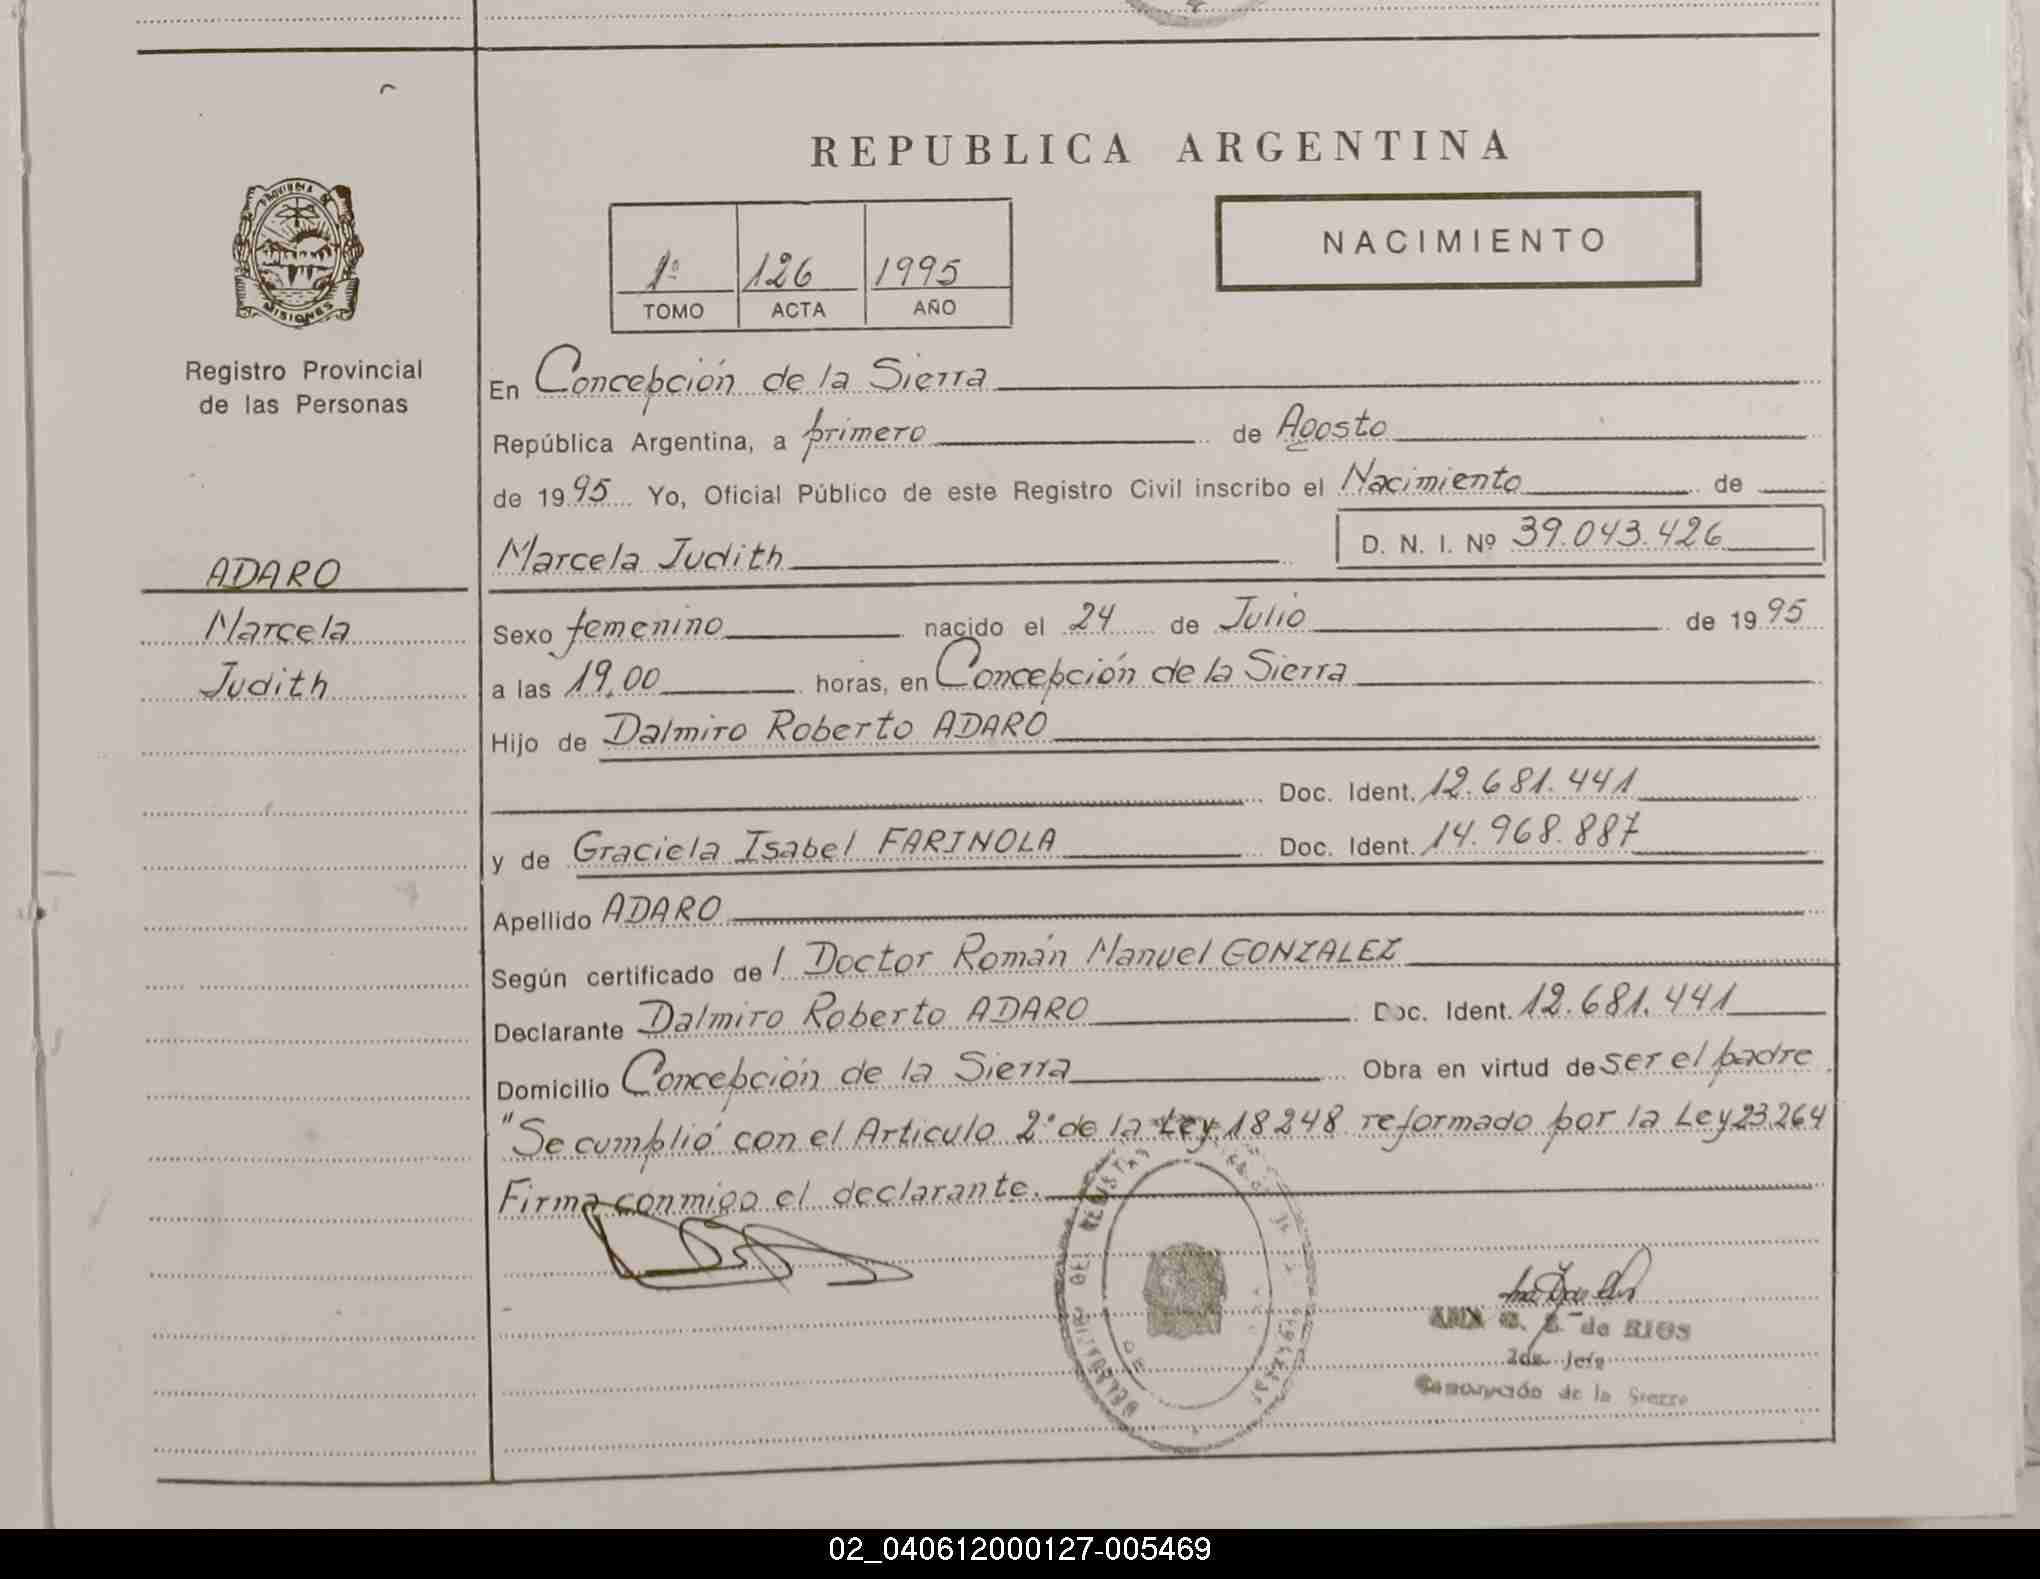 REPUBLICA ARGENTINA
PROVINCIA DE
MISIONES
Registro Provincial
de las Personas
1º 126 1995
TOMO ACTA AÑO
NACIMIENTO
En Concepción de la Sierra
República Argentina, a primero de Agosto
de 1995 Yo, Oficial Público de este Registro Civil inscribo el Nacimiento de
Marcela Judith D. N. I. Nº 39.043.426
ADARO
Marcela
Judith
Sexo femenino nacido el 24 de Julio de 1995
a las 19,00 horas, en Concepción de la Sierra
Hijo de Dalmiro Roberto ADARO
Doc. Ident. 12.681.441
y de Graciela Isabel FARINOLA Doc. Ident. 14.968.887
Apellido ADARO
Según certificado del Doctor Román Manuel GONZALEZ
Declarante Dalmiro Roberto ADARO Doc. Ident. 12.681.441
Domicilio Concepción de la Sierra Obra en virtud de ser el padre
"Se cumplió con el Articulo 2º de la Ley 18248 reformado por la Ley 23.264
Firma conmigo el declarante.
de RIOS
de la Sierra
02_040612000127-005469